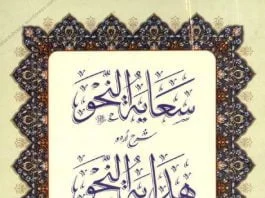 سعاية النحو
شرح اردو
هداية النحو